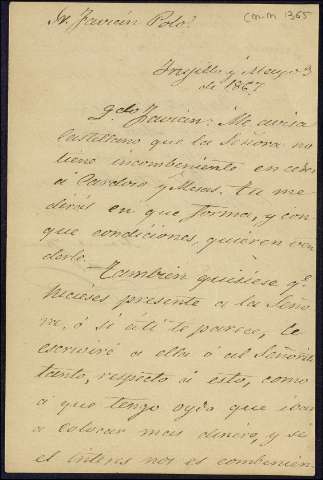 Sr. Javier Polo.
con-m 1365
Trugillo y Mayo 3
de 1867
qdo Javier: Me avisa
Castellano que la Señora no
tiene incombeniente en ceder
á Cardoso y Mesas. tu me
dirás en que forma, y con
que condiciones, quieren ven
derlo.
Tambien quisiese qe
hicieses presente a la Seño
ra, ó si á ti te parece, le
escriviré a ella ó al Señorito
tanto, respecto á esto, como
a que tengo oydo que iban
a colocar mas dinero, y si
el interes nos es combenien